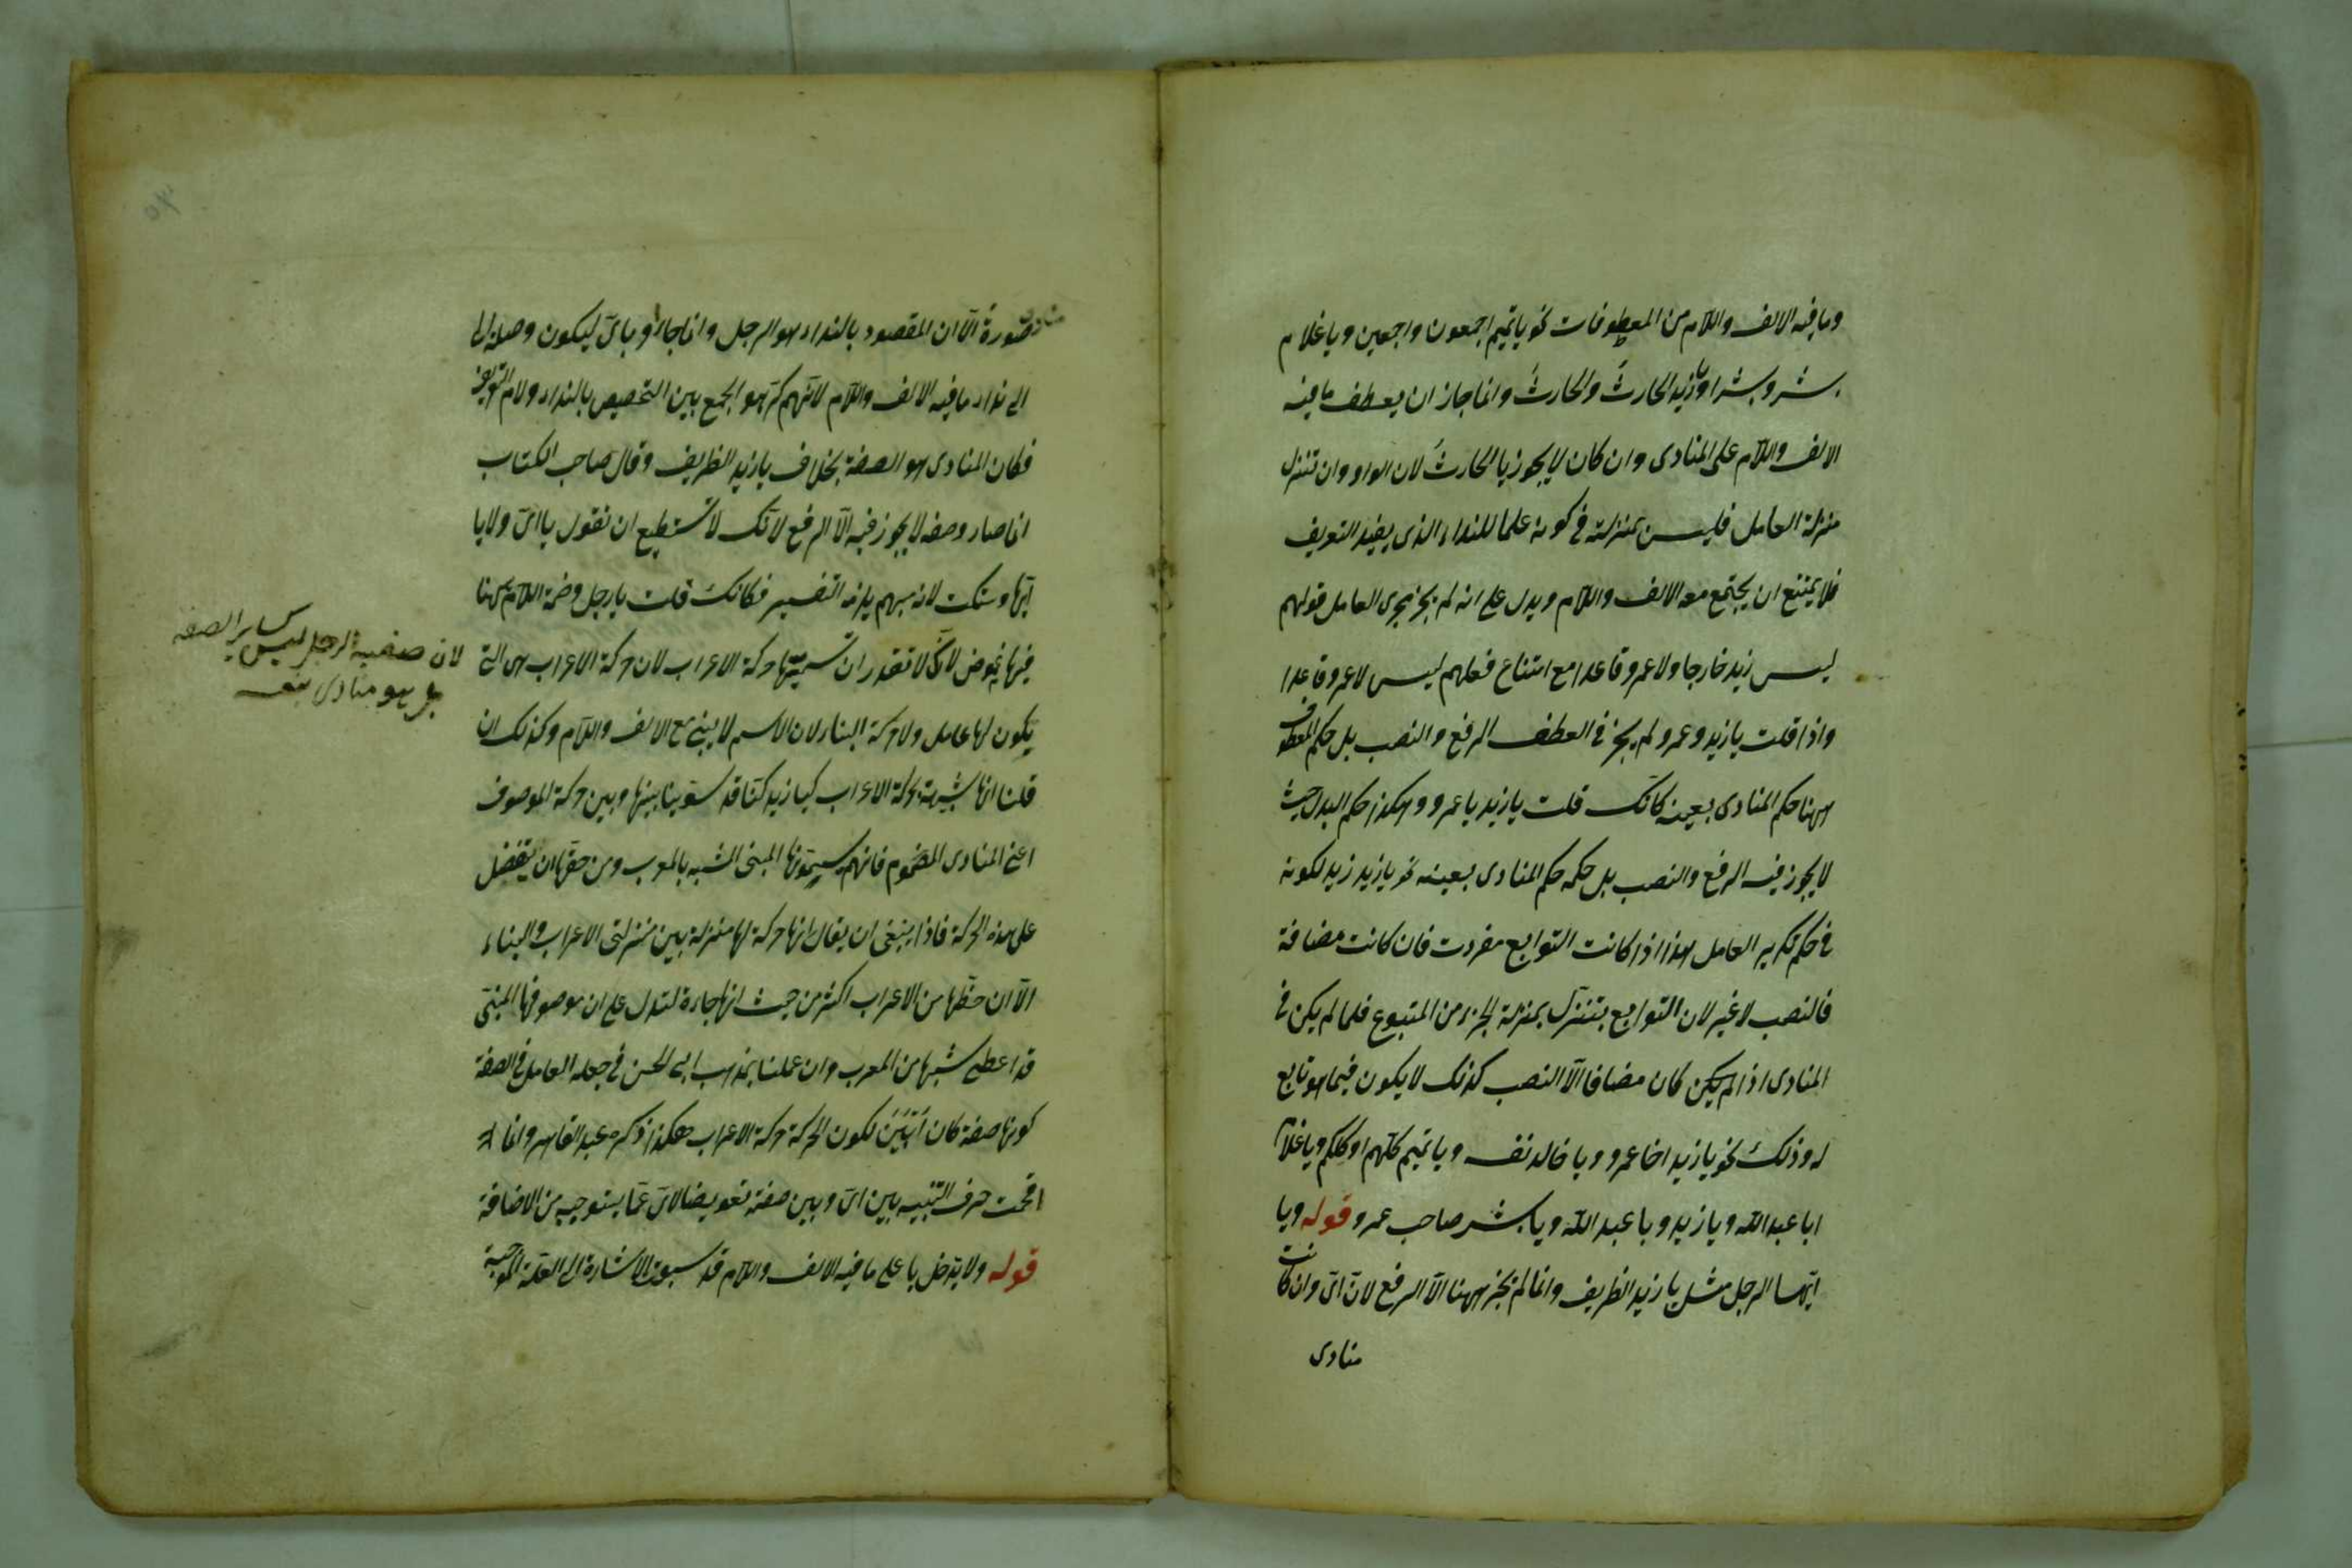 وما فيه الالف واللام من المعطوفات نحو يا تميم اجمعون واجمعين ويا غلام
بشر وبشرا ويا زيد الحارثُ والحارثَ وانما جاز ان يعطف ما فيه
الالف واللام على المنادى وان كان لا يجوز يا الحارث لان الواو وان تنزل
منزلة العامل فليس بمنزلته في كونه علما للنداء الذى يفيد التعريف
فلا يمتنع ان يجتمع معه الالف واللام ويدل على انه لم يجر مجرى العامل قولهم
ليس زيد خارجا ولا عمرو قاعدا مع امتناع فعلهم ليس لا عمرو قاعدا
واذا قلت يا زيد وعمرو لم يجز في العطف الرفع والنصب بل حكم المعطوف
ههنا حكم المنادى بعينه كانّك قلت يا زيد يا عمرو وهكذا حكم البدل حيث
لا يجوز فيه الرفع والنصب بل حكمه حكم المنادى بعينه نحو يا زيد زيد لكونه
في حكم تكرير العامل هذا اذا كانت التوابع مفردة فان كانت مضافة
فالنصب لا غير لان التوابع يتنزل بمنزلة الجزء من المتبوع فلما لم يكن في
المنادى اذا لم يكن كان مضافا الّا النصب كذلك لا يكون فيما هو تابع
له وذلك نحو يا زيد اخا عمرو ويا خالد نفسه ويا تميم كلّهم او كلكم ويا غلام
ابا عبد الله ويا زيد ويا عبد الله ويا بشر صاحب عمرو قوله ويا
ايّها الرجل مثل يا زيد الظريف وانما لم يجز ههنا الّا الرفع لانّ اىّ وان كانت
منادى
منادى صورة الّا ان المقصود بالنداء هو الرجل وانما جاؤا باىّ ليكون وصلة لها
الى نداء ما فيه الالف واللام لانّهم كرهوا الجمع بين التخصيص بالنداء ولام التعريف
فكان المنادى هو الصفة بخلاف يا زيد الظريف وقال صاحب الكتاب
انما صار وصفه لا يجوز فيه الّا الرفع لانّك لا تستطيع ان تقول يا اىّ ولا يا
ايّها وتسكت لانه مبهم يلزمه التفسير فكانك قلت يا رجل وضمة اللام ههنا
فيها غموض لانّك لا تقدر ان تسميّها حركة الاعراب لان حركة الاعراب هى التى
يكون لها عامل ولا حركة البناء لان الاسم لا يبنى مع الالف واللام وكذلك ان
قلنا انها شبيهة بحركة الاعراب كيا زيد كنّا قد سوّينا بينها وبين حركة الموصوف
اعنى المنادى المضموم فانهم يسمّونها المبنى المشبه بالمعرب ومن حقها ان تفضل
على هذه الحركة فاذا ينبغى ان يقال انها حركة لها منزلة بين منزلتى الاعراب والبناء
الّا ان حظّها من الاعراب اكثر من حيث انها جاءت لتدل على ان موصوفها المبنىّ
قد اعطى شبها من المعرب وان عملنا بمذهب ابى الحسن في جعله العامل في الصفة
كونها صفة كان ابين لكون الحركة حركة الاعراب هكذا ذكره عبد القاهر وانما
اقحمت حرف التنبيه بين اىّ وبين صفته تعويضا لاىّ عمّا يستوجبه من الاضافة
قوله ولا يدخل يا على ما فيه الالف واللام قد سبقت الاشارة الى العلّة الموجبة
لان صفية الرجل ليس كساير الصفة
بل هو منادى بنفسه